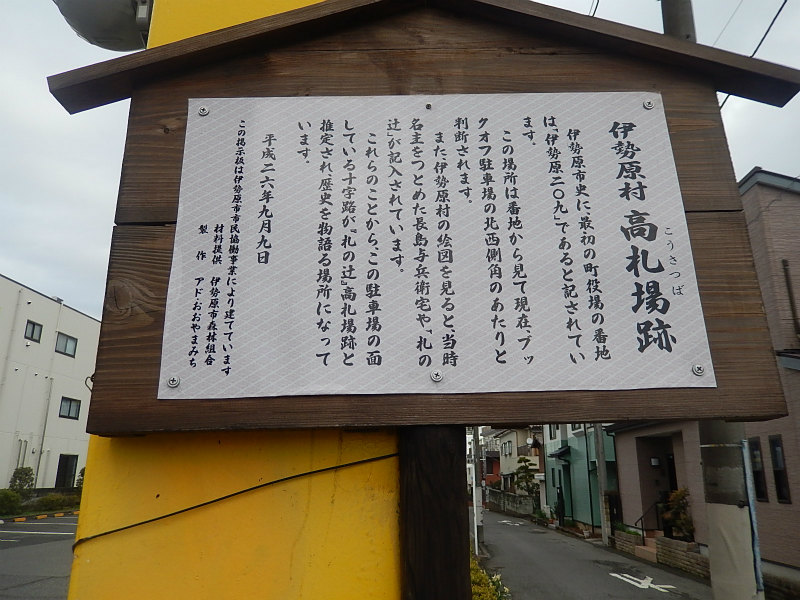 伊勢原村 高札場跡
こうさつば
伊勢原市史に最初の町役場の番地
は、『伊勢原二〇九』であると記されてい
ます。
この場所は番地から見て現在、ブッ
クオフ駐車場の北西側角のあたりと
判断されます。
また伊勢原村の絵図を見ると、当時
名主をつとめた長島与兵衛宅や、『札の
辻』が記入されています。
これらのことから、この駐車場の面
している十字路が、『札の辻』高札場跡と
推定され、歴史を物語る場所になって
います。
平成二六年九月九日
この掲示板は伊勢原市市民協働事業により建てています
材料提供 伊勢原市森林組合
製作 アド・おおやまみち